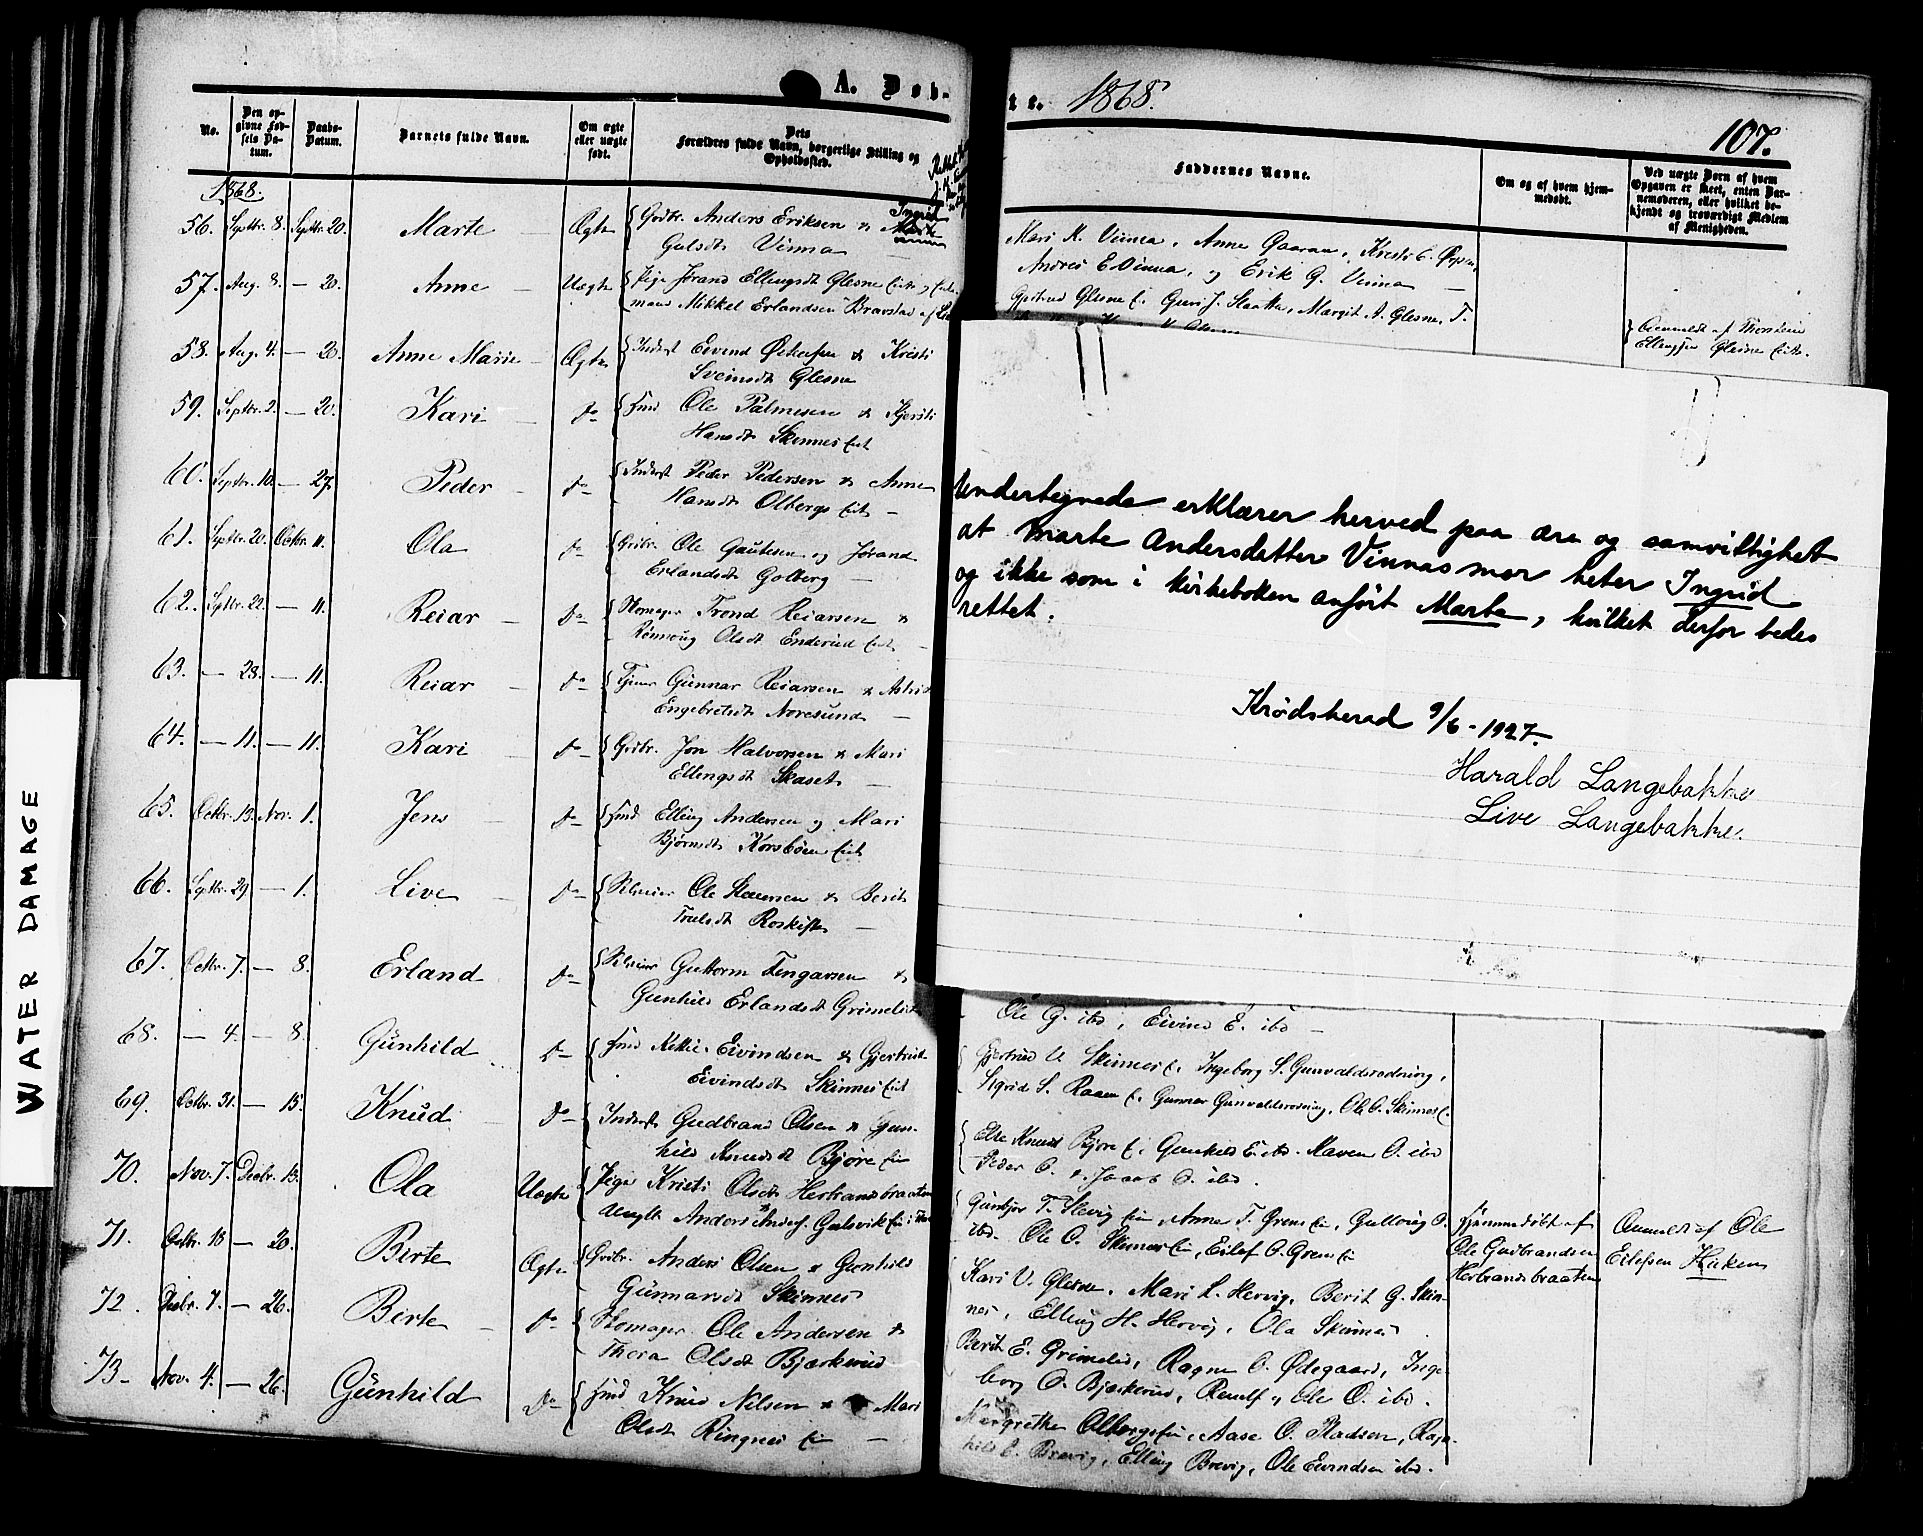 A. Døb-
te. 1868.
107.
No.
Den op-
givne Fød-
sels Da-
tum.
Daabs-
Datum.
Barnets fulde Navn.
Om ægte
eller uægte
født.
Dets
Forældres fulde Navn, borgerlige Stilling og
Opholdssted.
Faddernes Navne.
Om og af hvem hjem-
medøbt.
Ved uægte Børn af hvem
Opgaven er skeet, enten Bar-
nemoderen, eller hvilket be-
kjendt og troværdigt Medlem
af Menigheden.
1868.
56. Septbr. 8. Septbr. 20. Marte Ægte Gdbr. Anders Eriksen & Ingrid Marte
Gulsdt Vinna
57. Aug. 8. — 20. Anne Uægte Pige Jørand Ellingsdt Glesne
mand Mikkel Erlandsen Bravstad af
58. Aug. 4. — 20. Anne Marie Ægte Inderst Eivend & Kristi
Sveinsdt Glesne
59. Septbr. 2. — 20. Kari do Hmd Ole Palmesen & Kjersti
Hansdt Skinnes eiet
60. Septbr. 10. — 27. Peder do Inderst Peder Pedersen & Anne
Hansdt Olbergs eiet
61. Septbr. 20. Octbr. 11. Ola do Gdbr. Ole Gautesen og Jørand
Erlandsdt Golberg
62. Septbr. 22. — 11. Reiar do Skomager Trond Reiarsen &
Rønnoug Olsdt Enderud eiet
63. — 28. — 11. Reiar do Tjener Gunnar Reiarsen & Astrid
Engebretsdt Noresund
64. — 11. — 11. Kari do Gdbr. Jon Halvorsen & Mari
Ellingsdt Skaset
65. Octbr. 13. Nov. 1. Jens do Hmd Elling Andersen og Mari
Bjørnsdt Korsbøen eiet
66. Septbr. 29 — 1. Live do Selveier Ole & Berit
Trulsdt Roskifte
67. Octbr. 7. — 8. Erland do Selveier Guttorm Tengarsen &
Gunhild Erlandsdt Grimelid
68. — 4. — 8. Gunhild do Hmd Eivindsen & Gjertrud
Eivindsdt Skinnes eiet
69. Octbr. 31. — 15. Knud do Inderst Gudbrand Olsen & Gun-
hild Knudsdt Bjøre
70. Nov. 7. Decbr. 13. Ola Uægte Pige Kristi Olsdt Herbrandsbraaten
Ungk. Anders Anders. Gulsvik
71. Octbr. 18 — 20. Berte Ægte Gdbr. Anders Olsen & Gunhild
Gunnarsdt Skinnes
72. Decbr. 7. — 26. Berte do Skomager Ole Andersen &
Thora Olsdt Bjerkerud
73 Nov. 4. — 26. Gunhild do Hmd Knud Nilsen & Mari
Olsdt Ringnes
Mari K. Vinna, Anne
Andres E. Vinna, og Erik G. Vinna
Gjertrud Glesne Guri J. Slaatta, Margit A. Glesne, T.
Anmeldt af Thorstein
Ellingsen Glesne eiet.
Undertegnede erklærer herved paa ære og samvittighet
at Marte Andersdatter Vinnas mor heter Ingrid
og ikke som i kirkeboken anført Marte, hvilket derfor bedes
rettet.
Krødsherad 9/6-1927.
Harald Langebakke
Live Langebakke.
Ole G. ibd, Eivind E. ibd
Gjertrud U. Skinnes Ingeborg S. Gunvaldsrødning,
Sigrid S. Raaen Gunnar Gunvaldsrødning, Ole O. Skinnes
Else Knud Bjøre Gunhild E. ibd. Maren O. ibd
Peder O. & Jacob O. ibd.
Gunbjør T. Slevig Anne T. Gren Gullaug O.
ibd. Ole O. Skinnes Eilef O. Gren
Hjemmedøbt af
Ole Gudbrandsen
Herbrandsbraaten
Anmeldt af Ole
Eilefsen Hieken
Kari U. Glesne, Mari L. Hervig, Berit G. Skin-
nes, Elling H. Hervig, Ola Skinnes
Berit E. Grimelid, Ragne O. Ødegaard, Inge-
borg O. Bjerkerud, & Ole O. ibd.
Margrethe Olbergs Aase O. Pladsen, Ragn-
hild O. Brevig, Elling Brevig, Ole Eivindsen ibd.
WATER DAMAGE